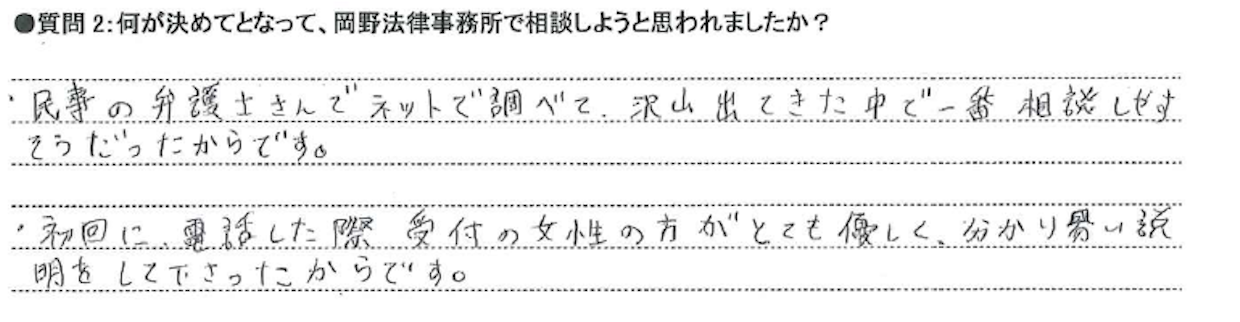 ●質問2:何が決めてとなって、岡野法律事務所で相談しようと思われましたか?
・民事の弁護士さんでネットで調べて、沢山出てきた中で一番相談しやす
そうだったからです。
・初回に、電話した際 受付の女性の方がとても優しく、分かり易い説
明をして下さったからです。